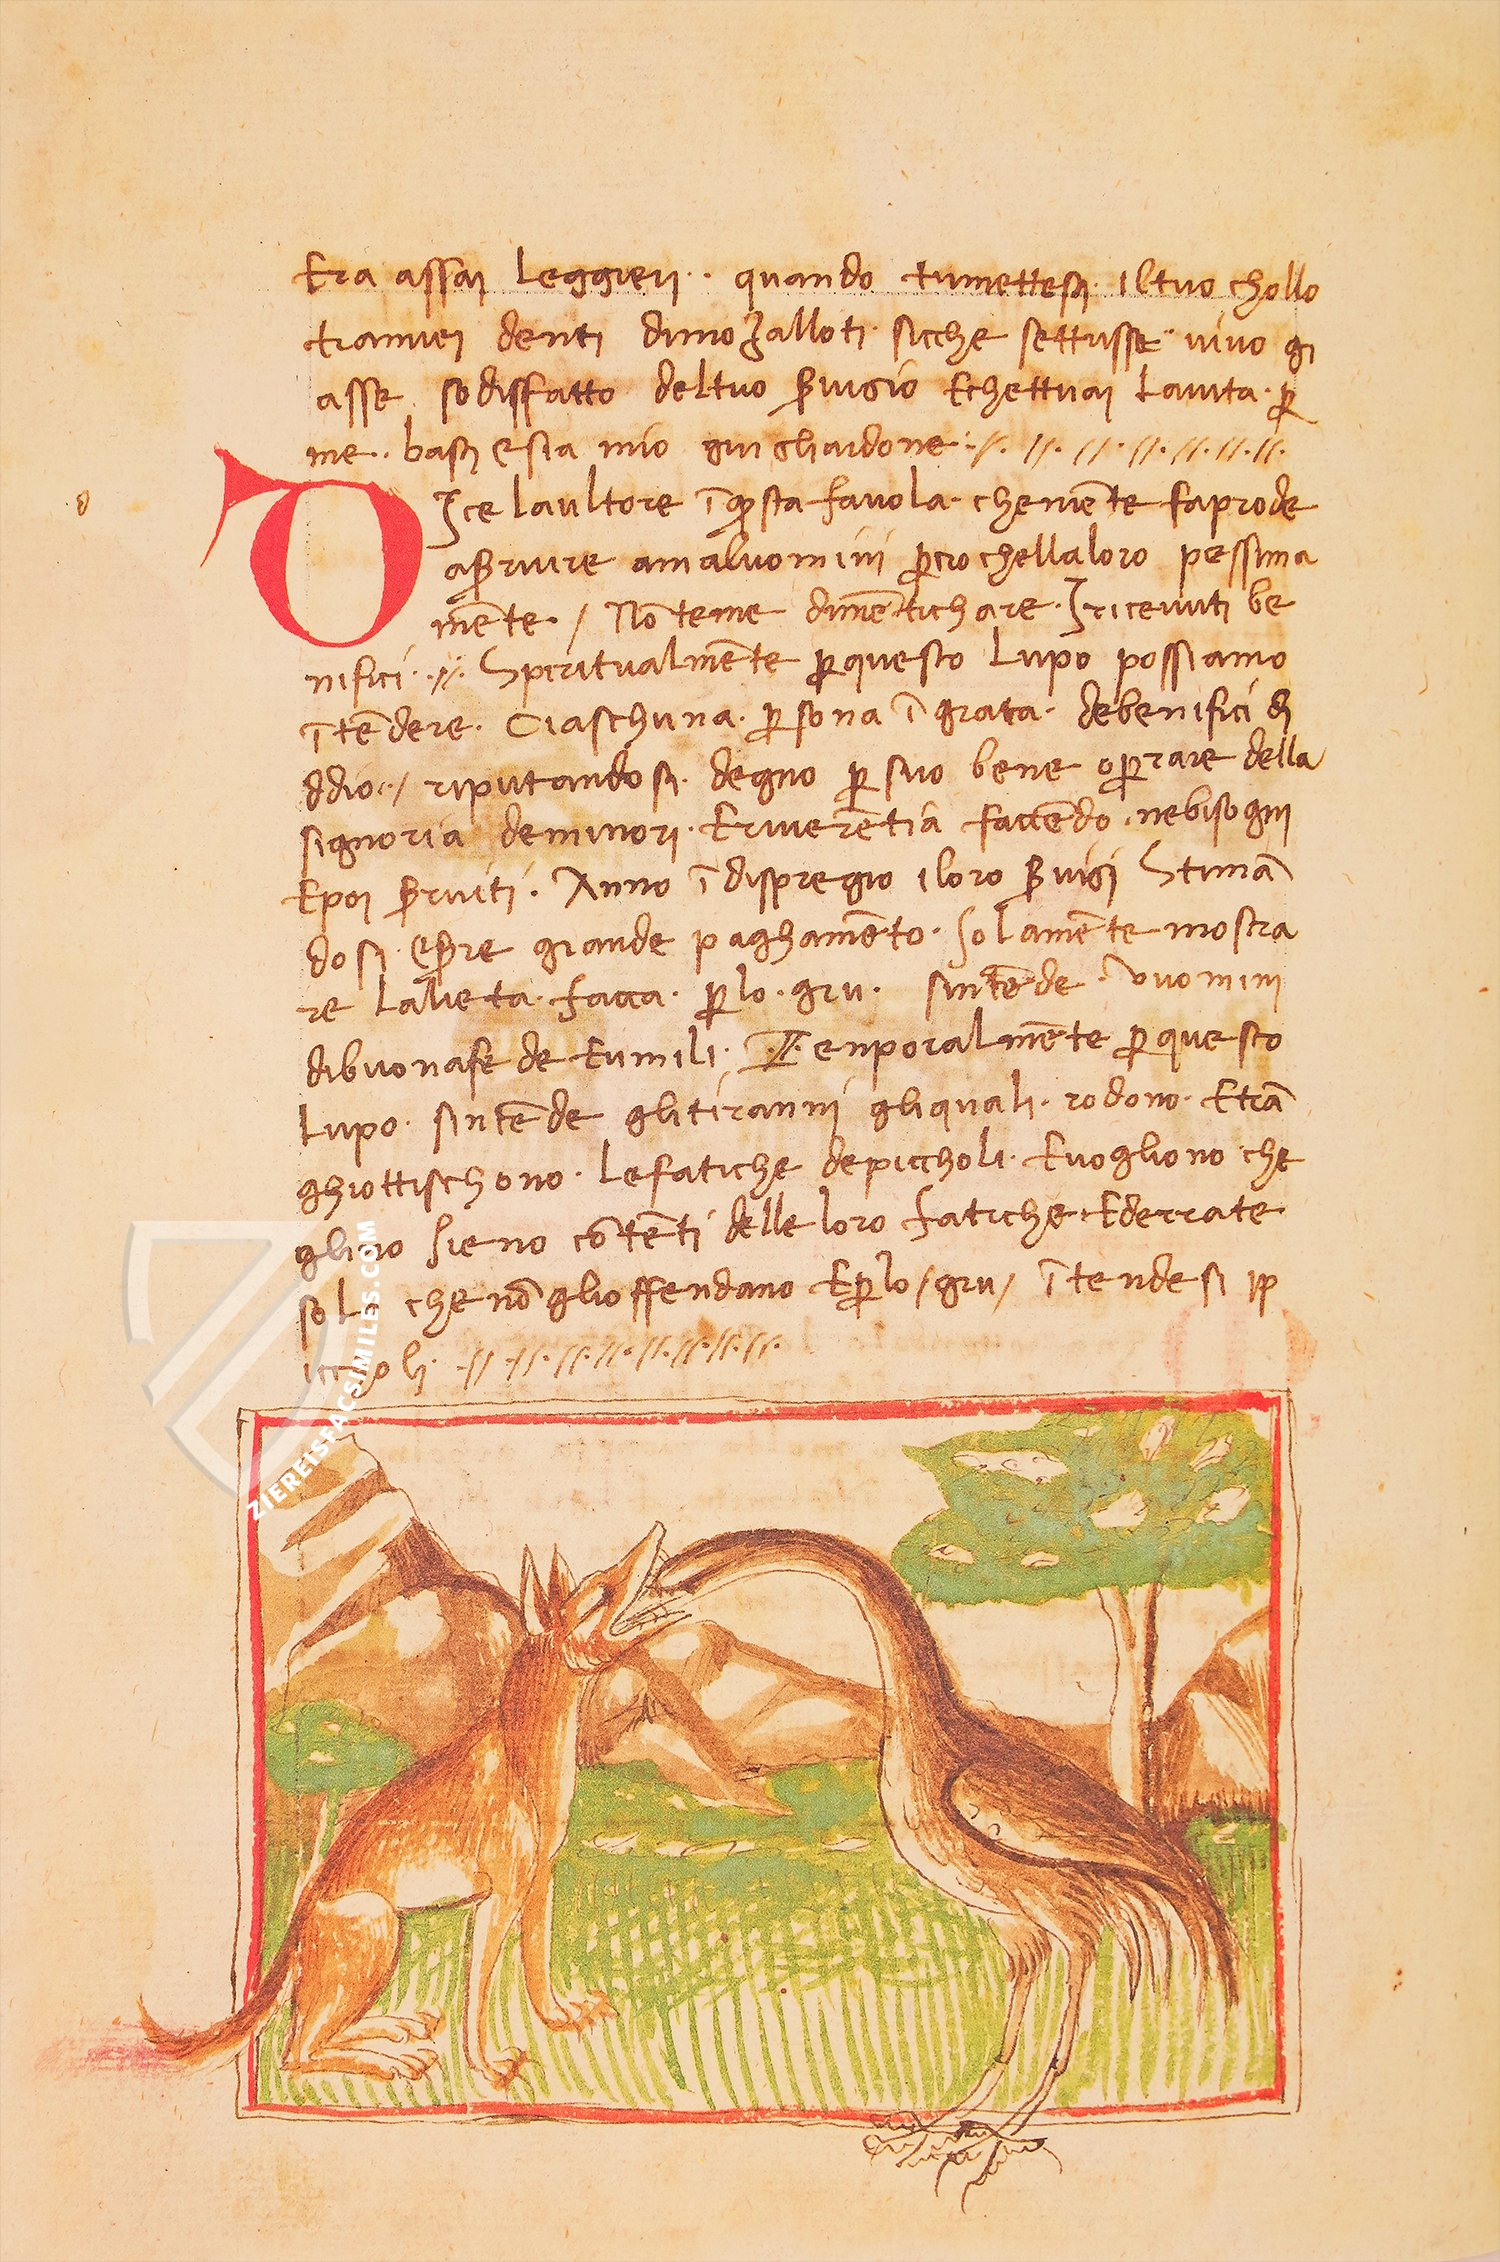 Era assai leggieri·· quando tumettesti· iltuo chollo
tramiei denti dimozalloti· sicche settusse vivo gi
asse sodisfatto deltuo s̄uigio Echettuai lauita· p̄
me·· basti Esia mio guighaidone·
DIce laultore ī q̄sta fauola· cheniēte faprode
as̄ruire amaluomini p̄cio chellaloro pessima
mēte· / Nō teme dimētichare· I riceuuti be
nifici· ·//· Spiritualmēte p̄questo Lupo possiamo
ītēdere· Ciaschuna· p̄sona ī grata· debenifici di
ddio·/ riputandosi· degno p̄ suo bene op̄rare della
signoria deminori· Eriuerētia faccēdo· nebisogni
Epoi s̄ruiti· Anno ī dispregio iloro s̄uigi Stimā
dosi· Es̄re grande paghamēto· Solamēte mostra
re Lalieta· facca· p̄lo· gru· sintēde· vuomini
dibuonafe de Eumili· Tenporalmēte p̄questo
Lupo· sintēde glitiranni gliquali· rodono· Etrā
ghiottischono· Lefatiche depiccholi· Euogliono che
glino Sieno cōtēti delle loro fatiche· Ederrate
sol· che nō glioffendano Ep̄lo /gru/ ītendesi ip
iccholi·
ZIEREISFACSIMILES.COM